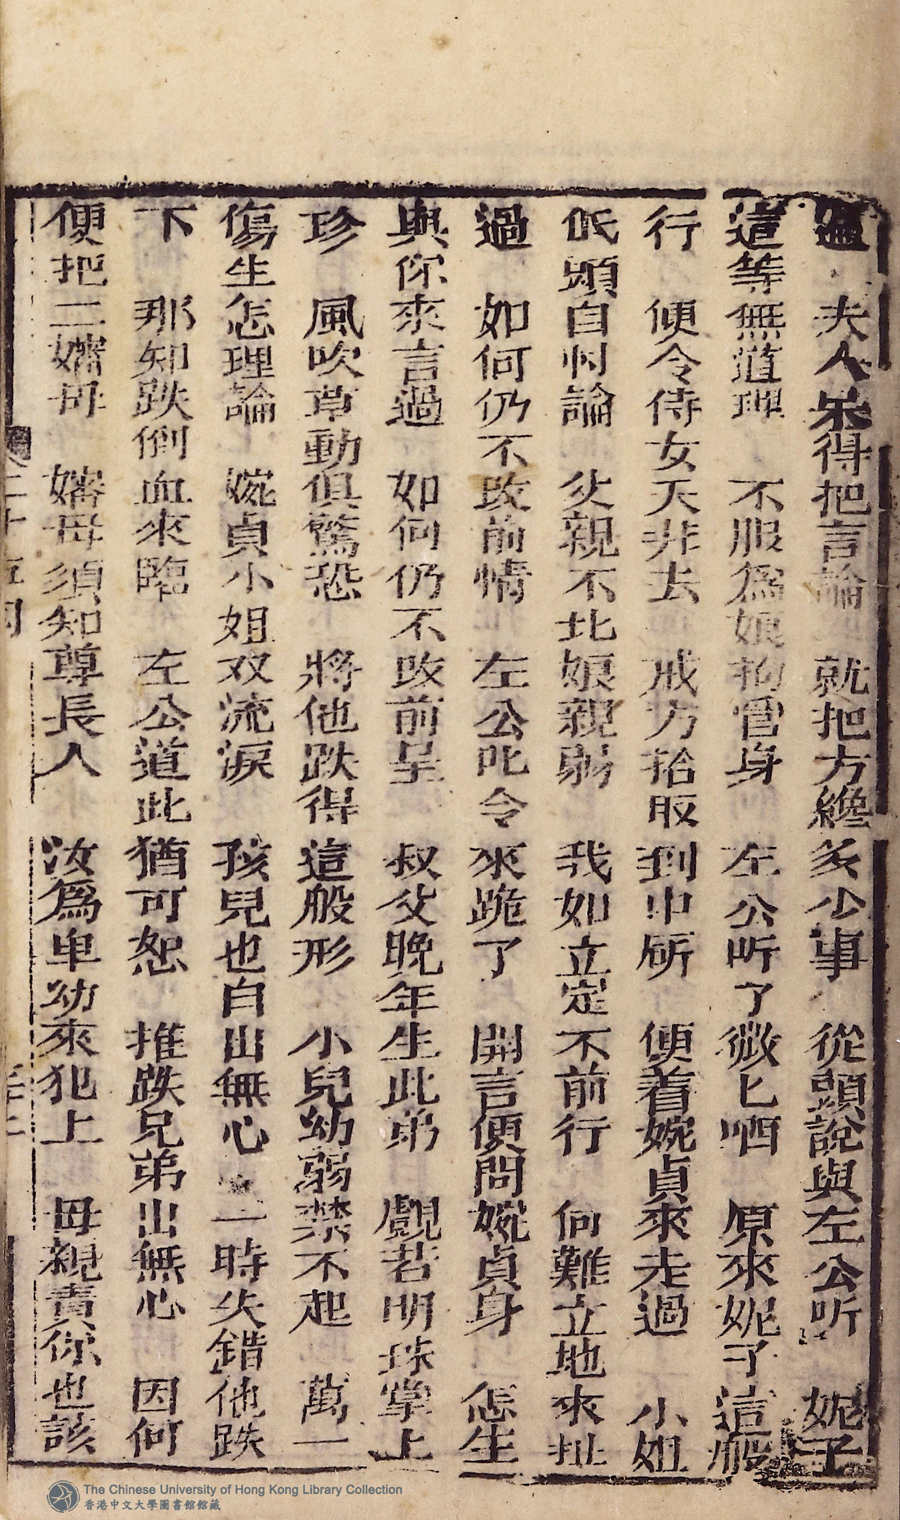 夫人朵得把言論　就把方纔多少事　從頭說與左公听　妮子
這等無道理　不服爲娘拘管身　左公听了微匕哂　原來妮子這般
行　便令侍女天井去　戒方拾取到中𠩄　便着婉貞來走過　小姐
低頭自忖論　父親不比娘親弱　我如立定不前行　何難立地來扯
過　如何仍不改前情　左公叱令來跪了　開言便問婉貞身　怎生
與你來言過　如何仍不改前呈　叔父晚年生此弟　覩若明珠掌上
珍　風吹草動俱驚恐　將他跌得這般形　小兒幼弱禁不起　萬一
傷生怎理論　婉貞小姐双流淚　孩兒也自出無心　一時失錯他跌
下　那知跌倒血來臨　左公道此猶可恕　推跌兄弟出無心　因何
便把二嬸母　嬸母須知尊長人　汝爲卑幼來犯上　母親責你也該
二十五回
The Chinese University of Hong Kong Library Collection
香港中文大學圖書館館藏